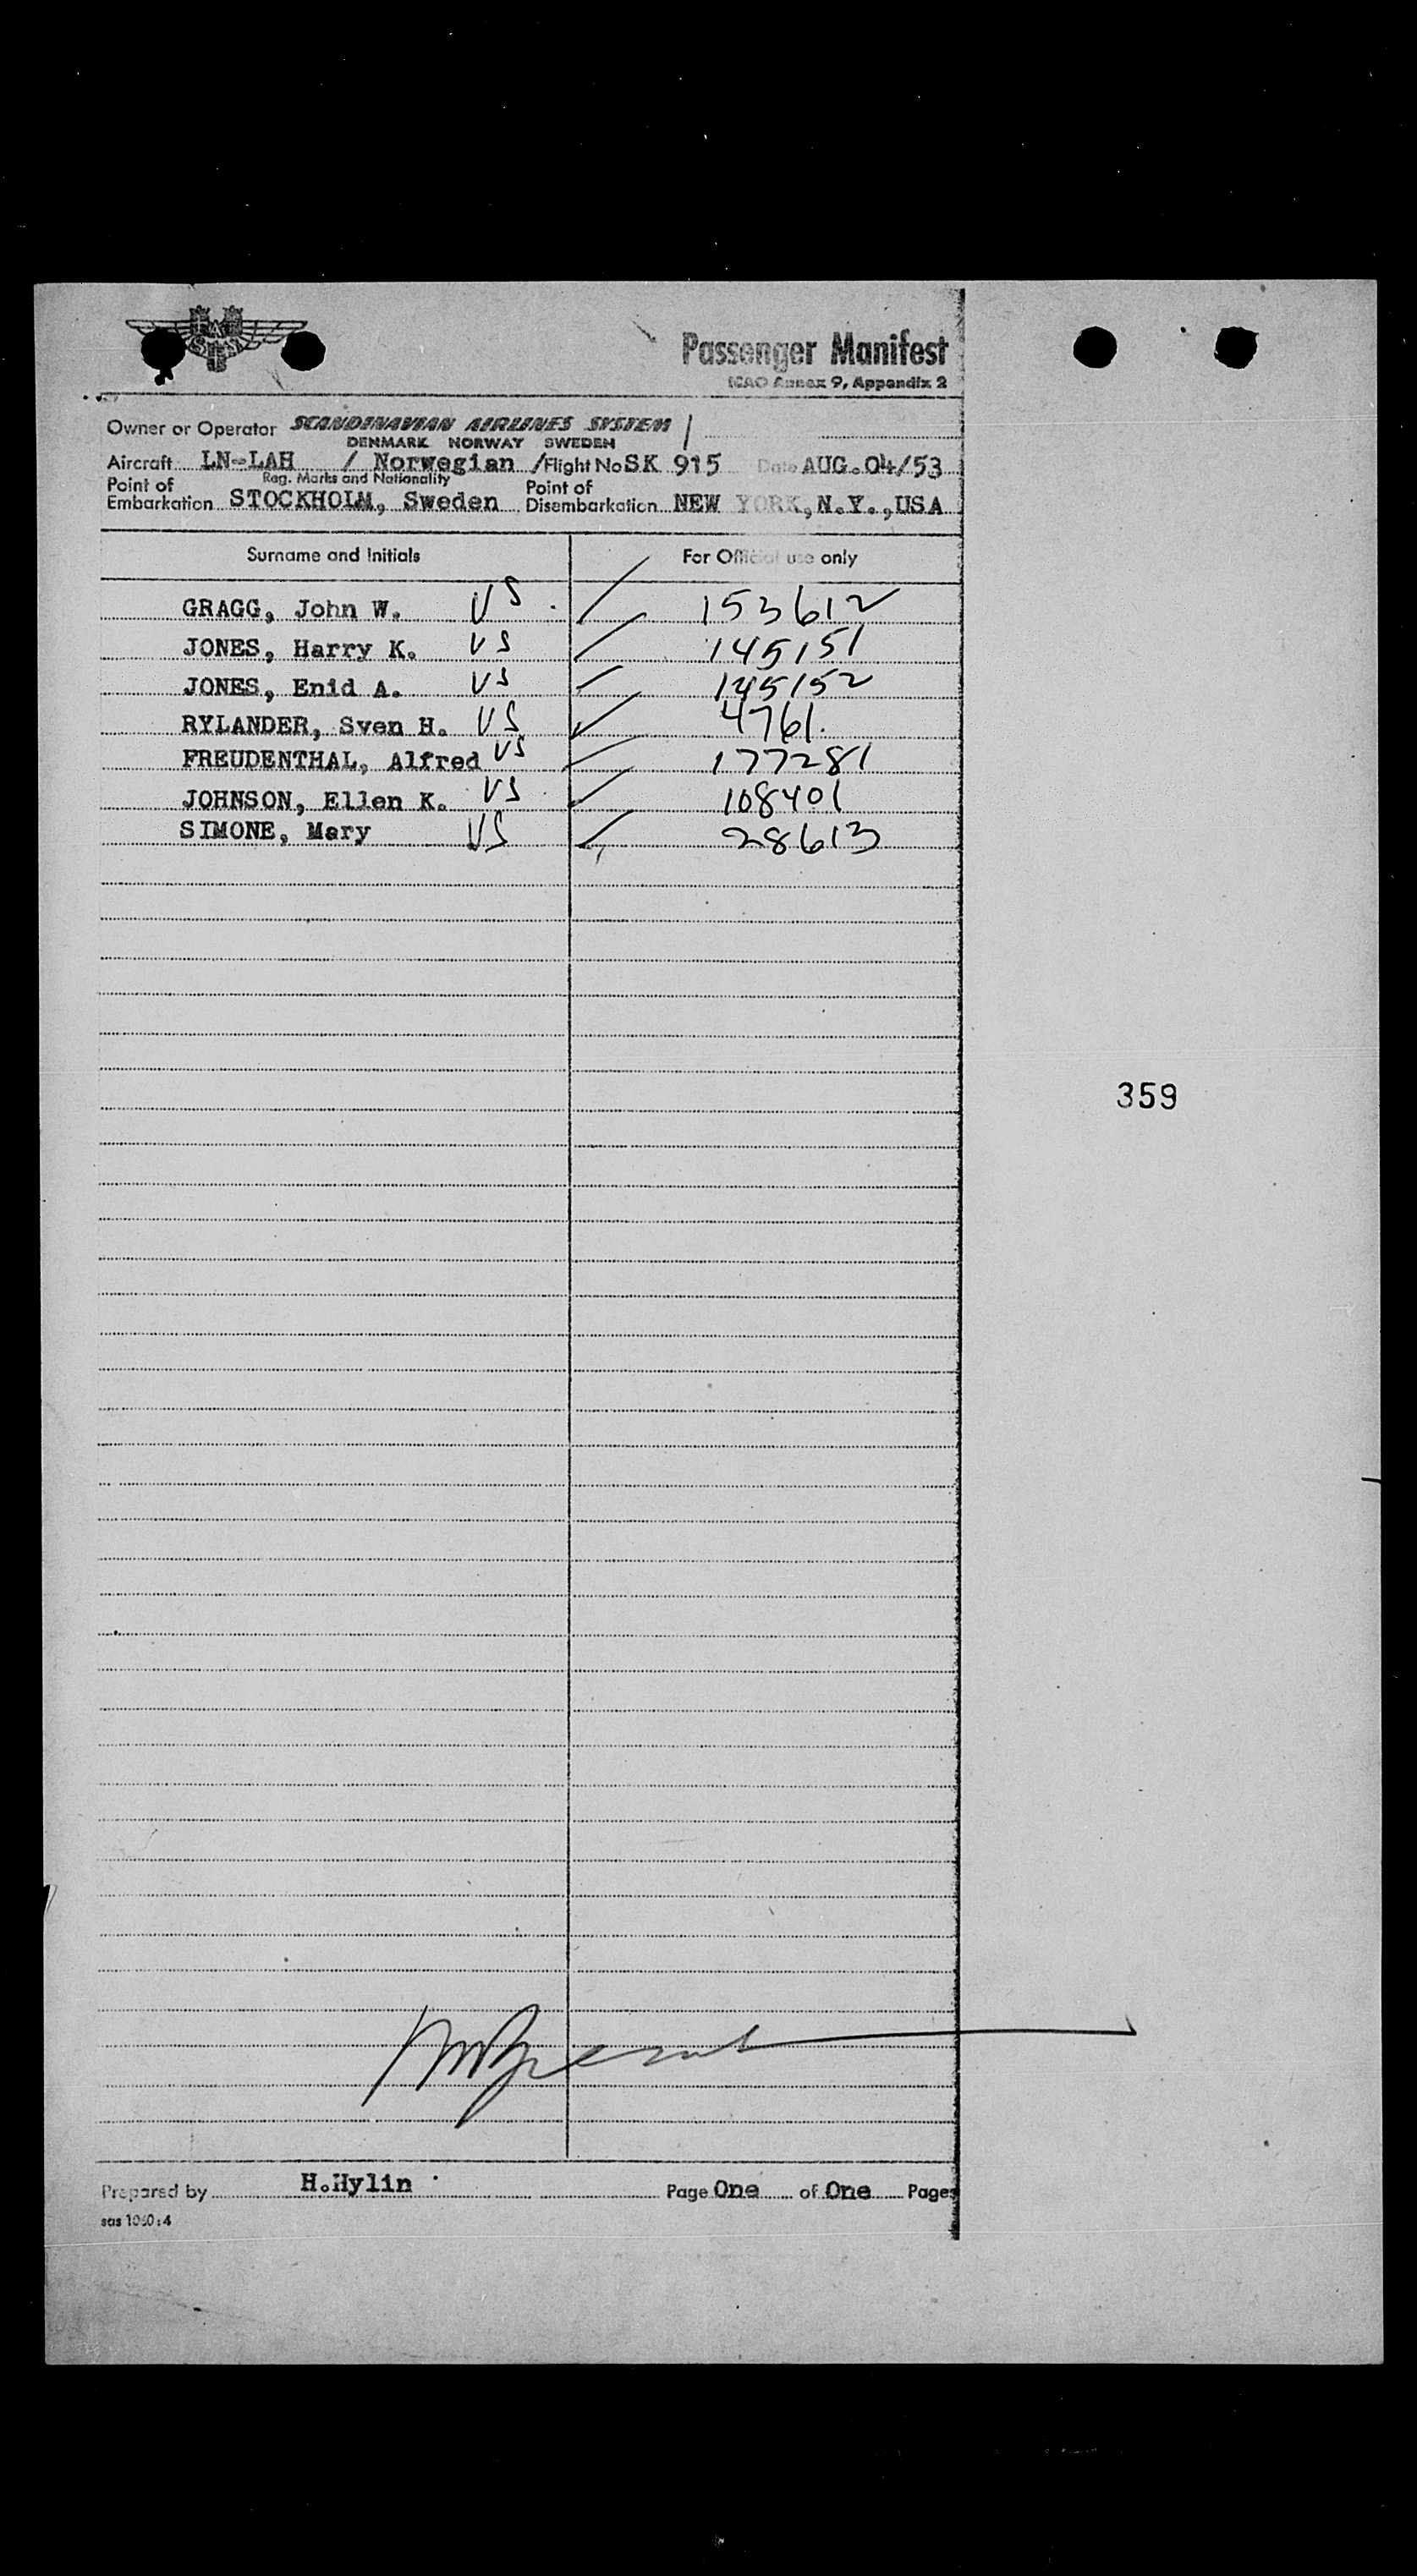 SAS
Passenger Manifest
ICAO Annex 9, Appendix 2
Owner or Operator SCANDINAVIAN AIRLINES SYSTEM /
DENMARK NORWAY SWEDEN
Aircraft LN-LAH / Norwegian / Flight No SK 915 Date AUG. 04/53
Reg. Marks and Nationality
Point of Embarkation STOCKHOLM, Sweden Point of Disembarkation NEW YORK, N.Y., USA
Surname and Initials For Official use only
GRAGG, John W. US 153612
JONES, Harry K. US 145151
JONES, Enid A. US 145152
RYLANDER, Sven H. US 4761.
FREUDENTHAL, Alfred US 177281
JOHNSON, Ellen K. US 108401
SIMONE, Mary US 28613
359
Prepared by H.Hylin Page One of One Pages
sas 1060:4